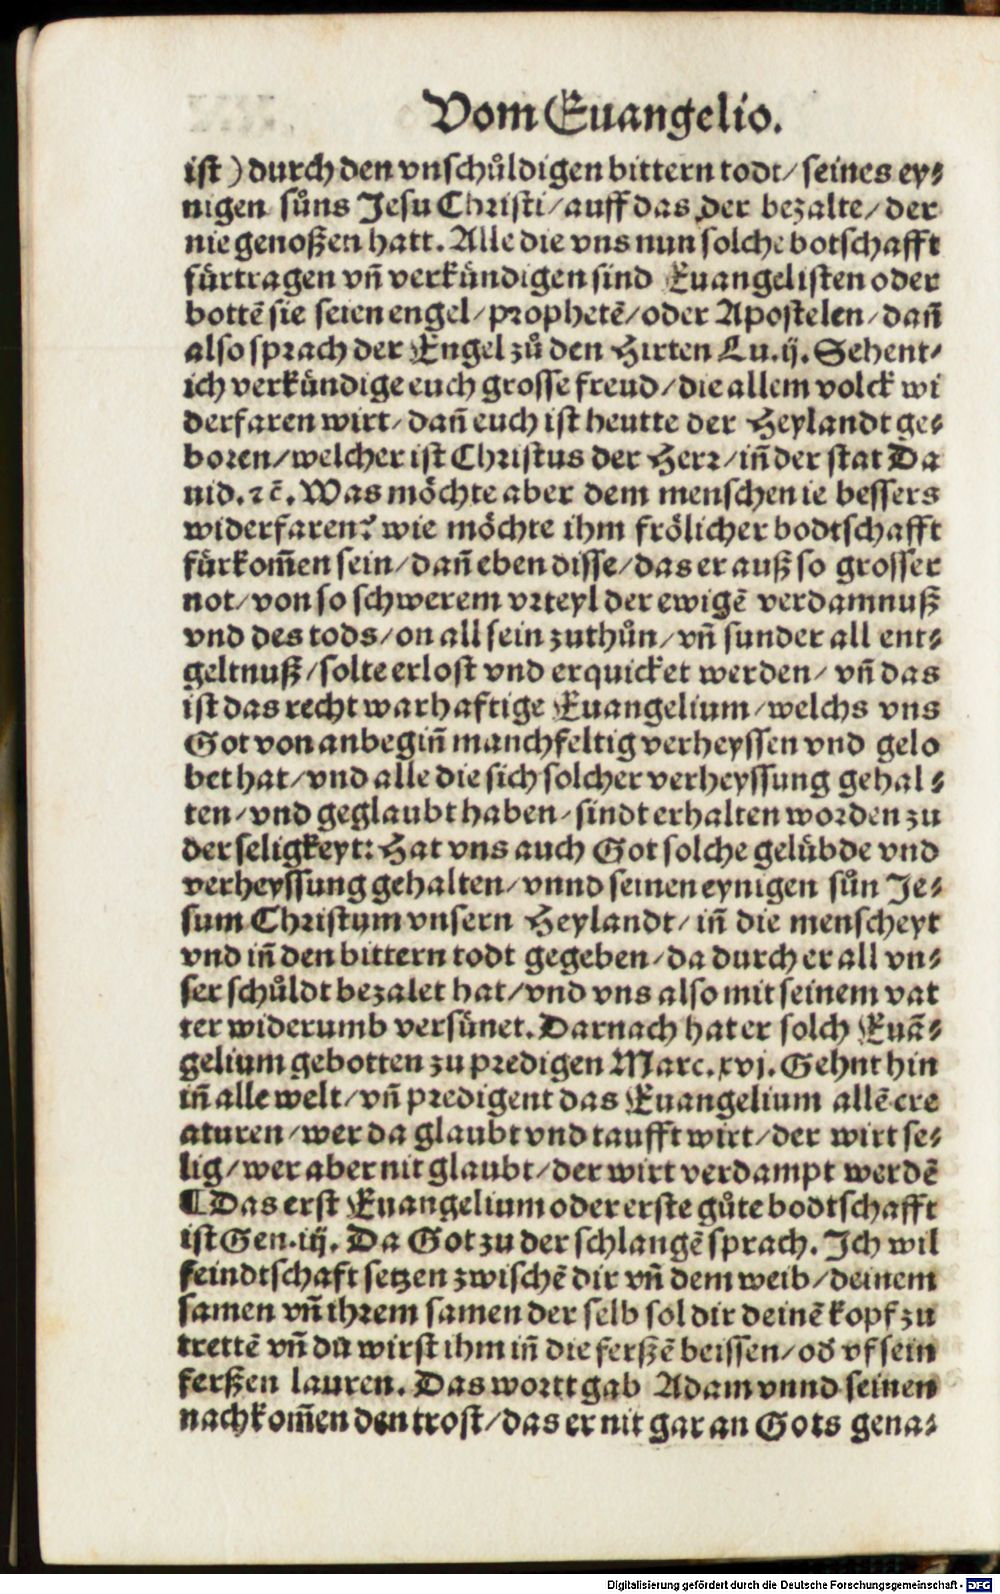 Vom Euangelio.
ist ) durch den vnschůldigen bittern todt/ seines ey⸗
nigen sůns Jesu Christi/ auff das der bezalte/ der
nie genoßen hatt. Alle die vns nun solche botschafft
fürtragen vñ verkündigen sind Euangelisten oder
bottē sie seien engel/ prophetē/ oder Apostelen/ dañ
also sprach der Engel zů den Hirten Lu.ij. Sehent/
ich verkündige euch grosse freud/ die allem volck wi
derfaren wirt/ dañ euch ist heutte der Heylandt ge⸗
boren/ welcher ist Christus der Herr/ iñ der stat Da
uid. ⁊c̄. Was möchte aber dem menschen ie bessers
widerfaren? wie möchte ihm frölicher bodtschafft
fürkom̄en sein/ dañ eben disse/ das er auß so grosser
not/ von so schwerem vrteyl der ewigē verdamnuß
vnd des tods/ on all sein zuthůn/ vñ sunder all ent⸗
geltnuß/ solte erlost vnd erquicket werden/ vñ das
ist das recht warhaftige Euangelium/ welchs vns
Got von anbegiñ manchfeltig verheyssen vnd gelo
bet hat/ vnd alle die sich solcher verheyssung gehal⸗
ten/ vnd geglaubt haben/ sindt erhalten worden zu
der seligkeyt: Hat vns auch Got solche gelübde vnd
verheyssung gehalten/ vnnd seinen eynigen sůn Je⸗
sum Christum vnsern Heylandt/ iñ die menscheyt
vnd iñ den bittern todt gegeben/ da durch er all vn⸗
ser schůldt bezalet hat/ vnd vns also mit seinem vat
ter widerumb versünet. Darnach hat er solch Euā⸗
gelium gebotten zu predigen Marc. xvj. Gehnt hin
iñ alle welt/ vñ predigent das Euangelium allē cre
aturen/ wer da glaubt vnd taufft wirt/ der wirt se⸗
lig/ wer aber nit glaubt/ der wirt verdampt werdē
¶ Das erst Euangelium oder erste gůte bodtschafft
ist Gen. iij. Da Got zu der schlangē sprach. Ich wil
feindtschaft setzen zwischē dir vñ dem weib/ deinem
samen vñ ihrem samen der selb sol dir deinē kopf zu
trettē vñ du wirst ihm iñ die ferßē beissen/ od̄ vf sein
ferßen lauren. Das wortt gab Adam vnnd seinen
nachkom̄en den trost/ das er nit gar an Gots gena⸗
Digitalisierung gefördert durch die Deutsche Forschungsgemeinschaft - DFG